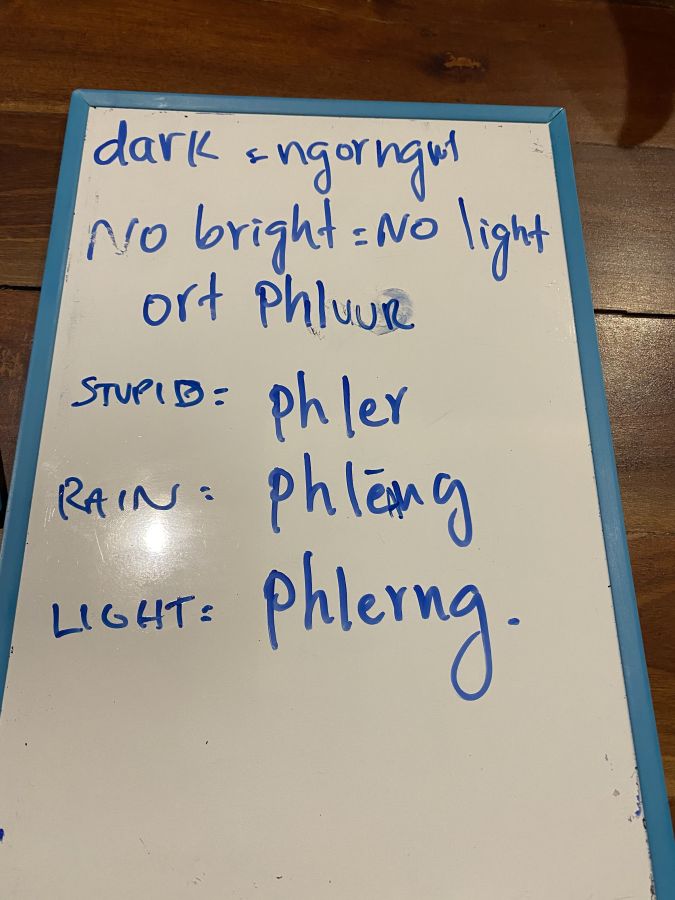 dark = ngorngut
No bright = No light
ort phluur
STUPID = phler
RAIN = phlēang
LIGHT = phlerng.